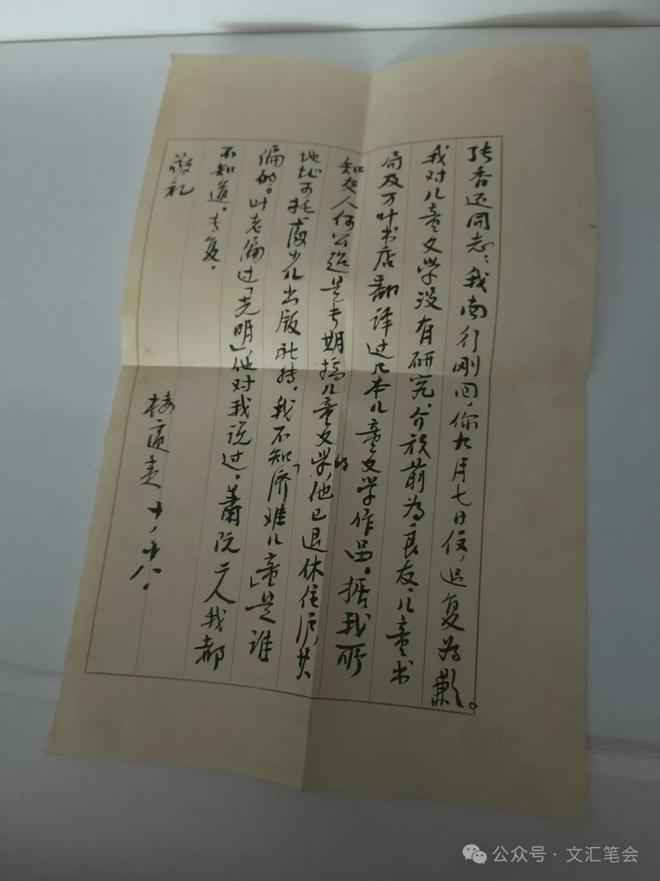 张香还同志:我南行刚回,你九月七日信,迟复为歉。
我对儿童文学没有研究,介放前为良友、儿童书
局及万叶书店翻译过几本儿童文学作品。据我所
知友人何公超是专期搞儿童文学的,他已退休住沪,其
地址可托少儿出版社转。我不知“济难儿童”是谁
编的。叶老编过“光明”他对我说过。萧阮二人我都
不知道。专复。
敬礼
楼适夷 十、十八。
公众号·文汇笔会